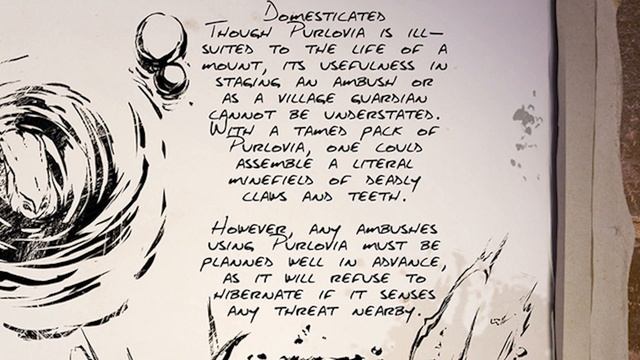 Domesticated
Though Purlovia is ill-
suited to the life of a
mount, its usefulness in
staging an ambush or
as a village guardian
cannot be understated.
With a tamed pack of
Purlovia, one could
assemble a literal
minefield of deadly
claws and teeth.
However, any ambushes
using Purlovia must be
planned well in advance,
as it will refuse to
hibernate if it senses
any threat nearby.